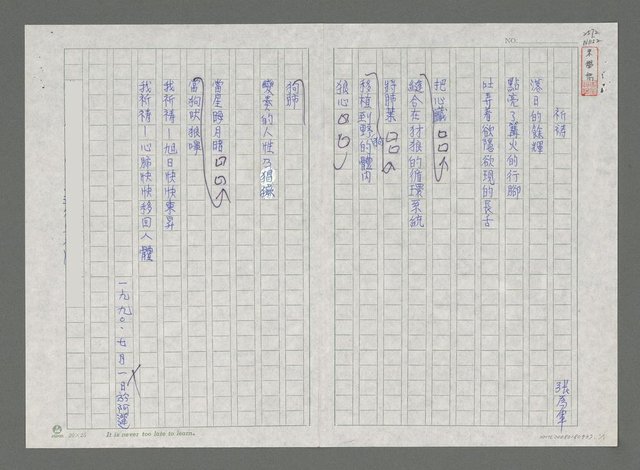 NO.
祈禱
張為軍
落日的餘輝
點亮了篝火的行腳
吐弄着欲隱欲現的長舌
把心臟
縫合在豺狼的循環系統
將肺葉
移植到野狗的體內
狼心
狗肺
變奏的人性乃猖獗
當星晦月暗
當狗吠狼嗥
我祈禱—旭日快快東昇
我祈禱—心肺快快移回人體
一九九〇.七月一日於阿蓮
20×25
It is never too late to learn.